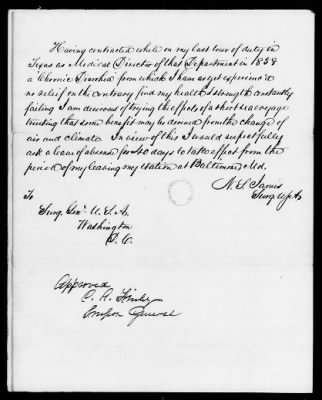 Having contracted while on my last tour of duty in
Texas as Medical Director of that Department in 1858
a "Chronic Diarrhœa" from which I have as yet experienced
no relief on the contrary find my health & strength constantly
failing I am desirous of trying the effects of a short sea voyage
trusting that some benefit may be derived from the change of
air and climate. In view of this I would respectfully
ask a leave of absence for 40 days to take effect from the
period of my leaving my station at Baltimore Md.
N. S. Jarvis
Surg. U.S.A.
To
Surg. Genl. U.S.A.
Washington
D.C.
Approved
C. A. Finley
Surgeon General